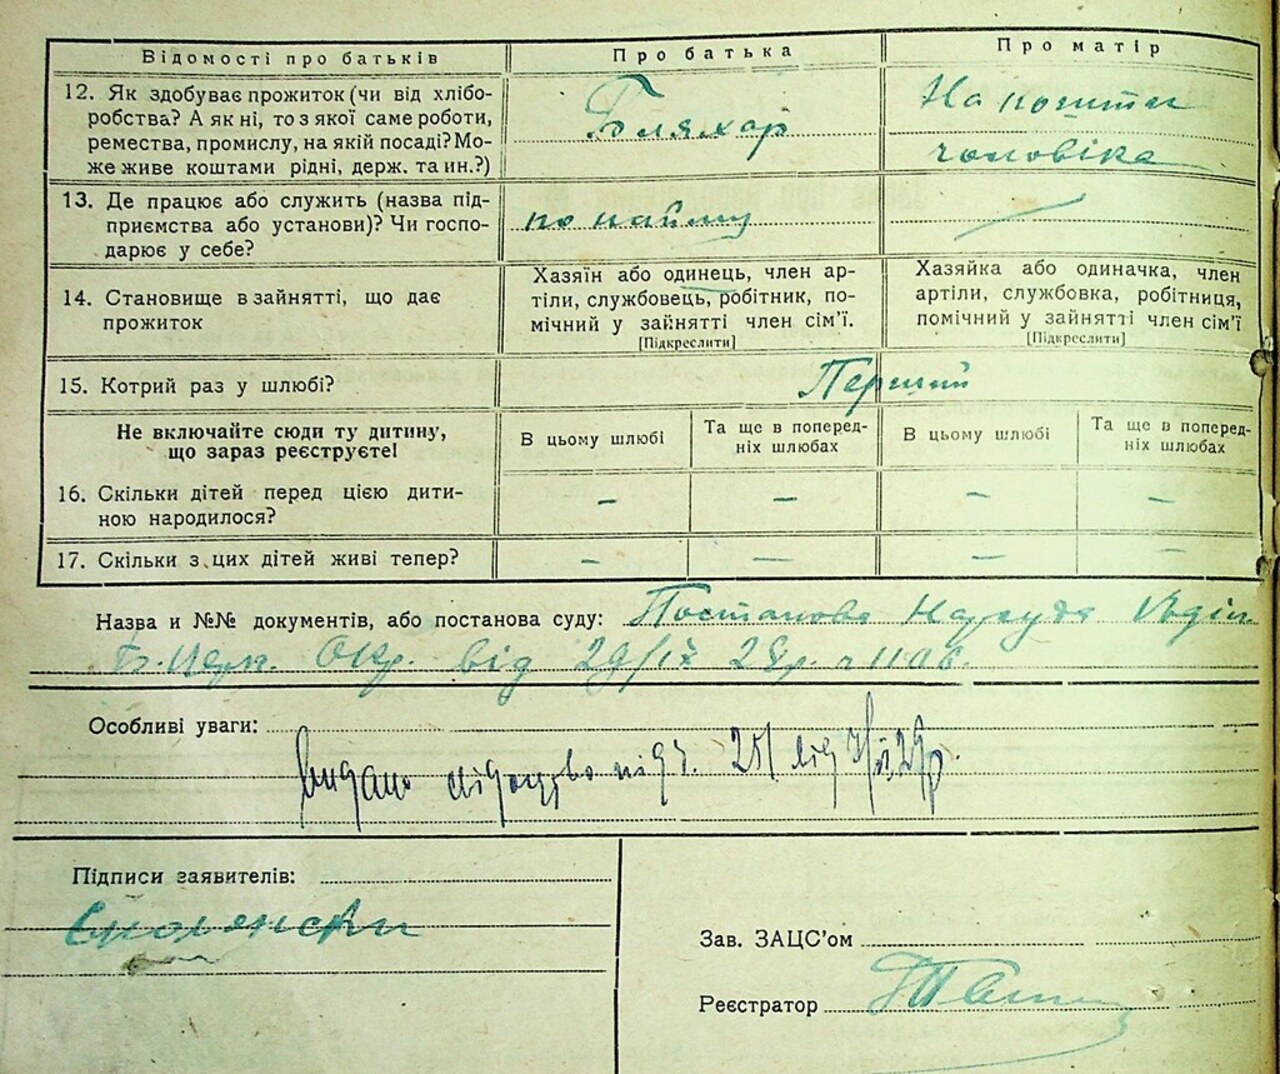 Відомості про батьків
Про батька
Про матір
12. Як здобуває прожиток (чи від хлібо-
робства? А як ні, то з якої саме роботи,
ремества, промислу, на якій посаді? Мо-
же живе коштами рідні, держ. та ин.?)
Бляхар
На кошти
чоловіка
13. Де працює або служить (назва під-
приємства або установи)? Чи госпо-
дарює у себе?
по найму
14. Становище в зайнятті, що дає
прожиток
Хазяїн або одинець, член ар-
тіли, службовець, робітник, по-
мічний у зайнятті член сім'ї.
[Підкреслити]
Хазяйка або одиначка, член
артіли, службовка, робітниця,
помічний у зайнятті член сім'ї
[Підкреслити]
15. Котрий раз у шлюбі?
Перший
Не включайте сюди ту дитину,
що зараз реєструєте!
В цьому шлюбі
Та ще в поперед-
ніх шлюбах
В цьому шлюбі
Та ще в поперед-
ніх шлюбах
16. Скільки дітей перед цією дити-
ною народилося?
– – – –
17. Скільки з цих дітей живі тепер?
– – – –
Назва и №№ документів, або постанова суду: Постанова Нарсуда
Б. Церк. Окр. від 29/IX 28р. ч 1106.
Особливі уваги:
Видано свідоцтво під ч. 251 від
Підписи заявителів:
Зав. ЗАЦС'ом
Реєстратор